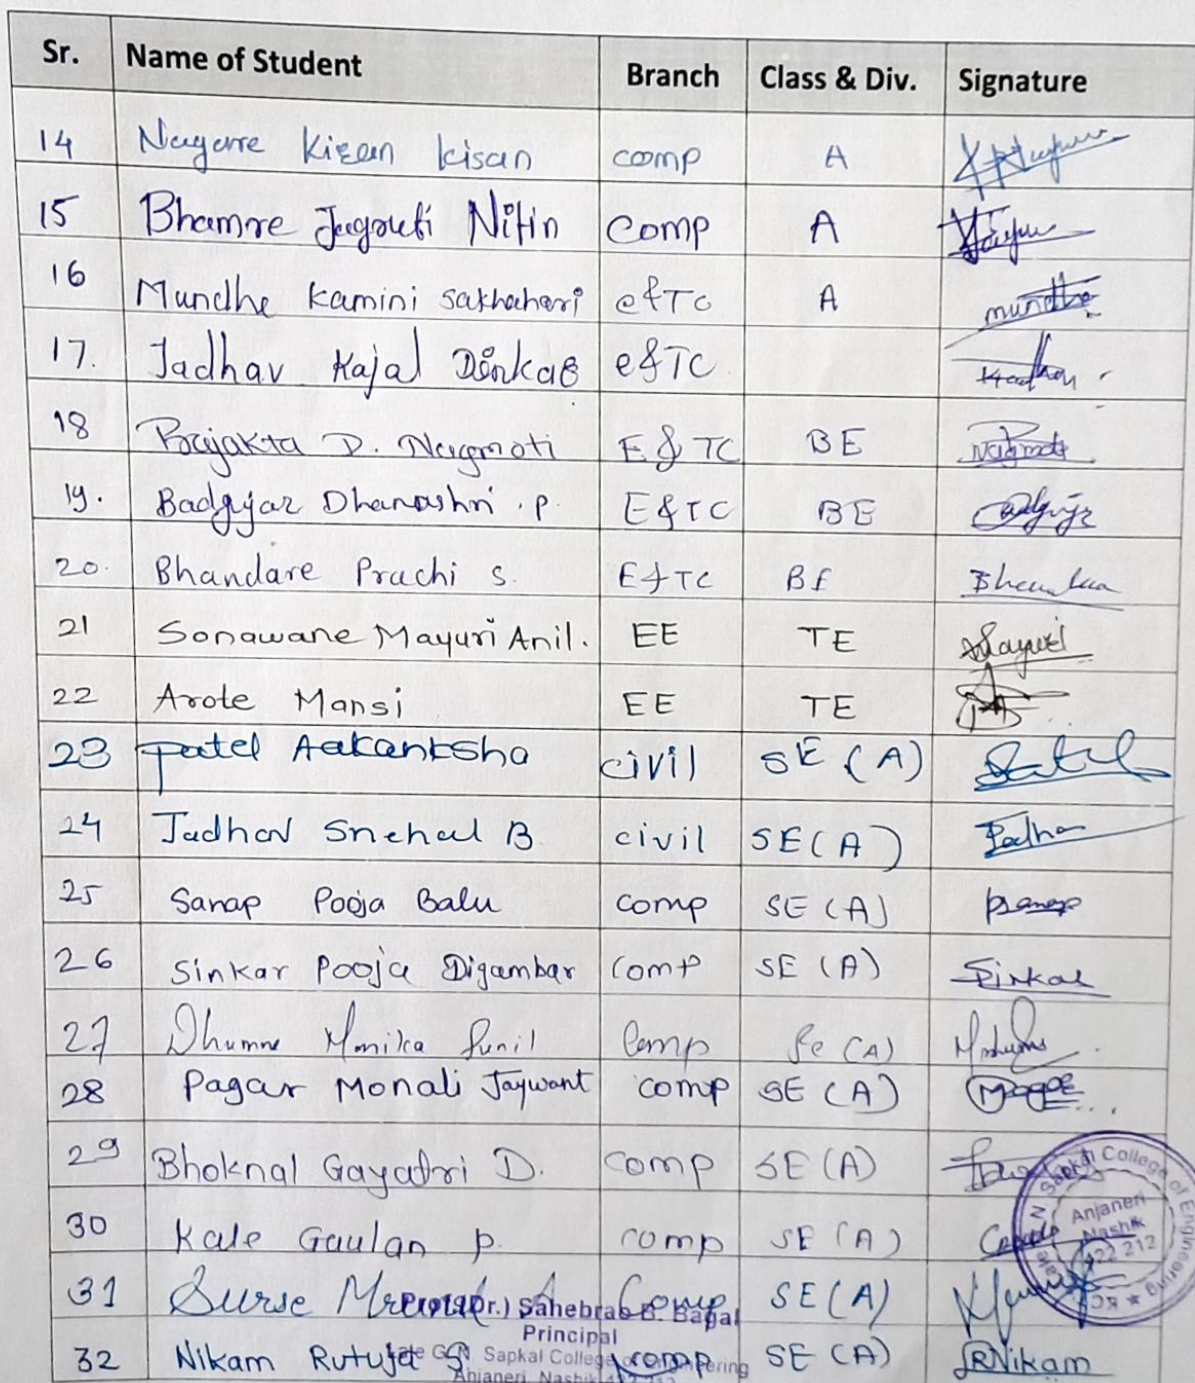 Sr. Name of Student Branch Class & Div. Signature
14 Nagare Kiran Kisan comp A
15 Bhamre Jagruti Nitin Comp A
16 Mundhe Kamini Sakhahari e&TC A mundhe
17. Jadhav Kajal Dinkar e&TC
18 Prajakta D. Nagmoti E & TC BE Nagmoti
19. Badgujar Dhanashri .P. E&TC BE
20. Bhandare Prachi S. E&TC BE
21 Sonawane Mayuri Anil. EE TE Mayuri
22 Arote Mansi EE TE
23 Patel Aakanksha civil SE (A) Patel
24 Jadhav Snehal B. civil SE(A)
25 Sanap Pooja Balu comp SE (A)
26 Sinkar Pooja Digambar Comp SE (A) Sinkar
27 Dhumne Monika Sunil Comp Se (A)
28 Pagar Monali Jaywant comp SE (A)
29 Bhoknal Gayatri D. comp SE (A)
30 Kale Gaulan P. comp SE (A)
31 Surse Mrunal A Comp SE (A)
32 Nikam Rutuja S. comp SE (A) RNikam
Prof. (Dr.) Sahebrao B. Bagal
Principal
Late G. N. Sapkal College of Engineering
Anjaneri, Nashik-422 212
Late G. N. Sapkal College of Engineering
Anjaneri
Nashik
422 212